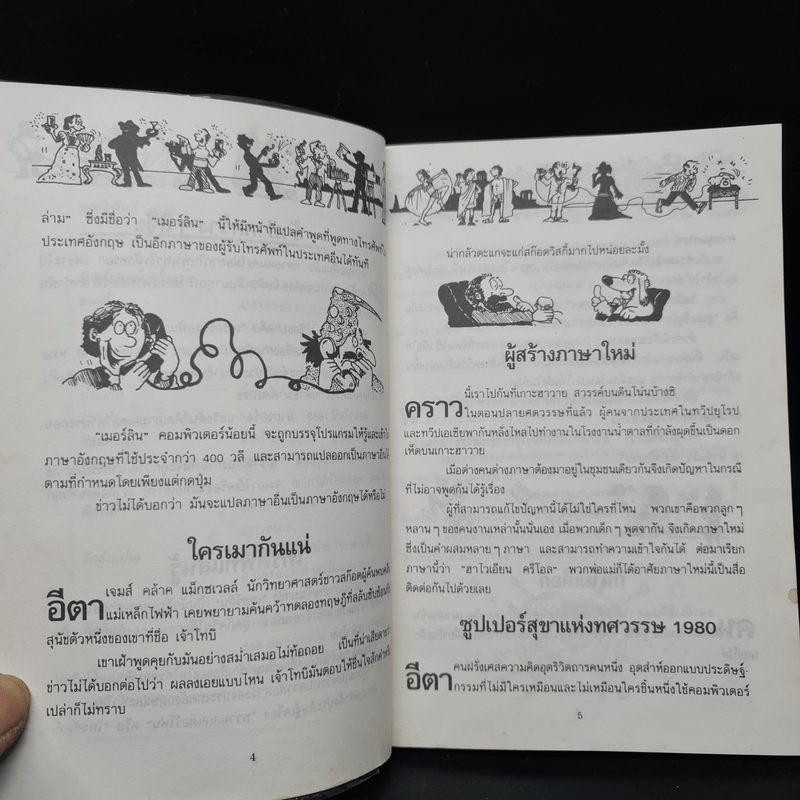 ล่าม" ซึ่งมีชื่อว่า "เมอร์ลิน" นี้ให้มีหน้าที่แปลคำพูดที่พูดทางโทรศัพท์ใน
ประเทศอังกฤษ เป็นอีกภาษาของผู้รับโทรศัพท์ในประเทศอื่นได้ทันที
"เมอร์ลิน" คอมพิวเตอร์น้อยนี้ จะถูกบรรจุโปรแกรมให้รู้และเข้าใจ
ภาษาอังกฤษที่ใช้ประจำกว่า 400 วลี และสามารถแปลออกเป็นภาษาอื่นได้
ตามที่กำหนดโดยเพียงแต่กดปุ่ม
ข่าวไม่ได้บอกว่า มันจะแปลภาษาอื่นเป็นภาษาอังกฤษได้หรือไม่
ใครเมากันแน่
อีตา เจมส์ คล้าค แม็กซเวลล์ นักวิทยาศาสตร์ชาวสก๊อตผู้ค้นพบคลื่น
แม่เหล็กไฟฟ้า เคยพยายามค้นคว้าทดลองทฤษฎีที่สลับซับซ้อนกับ
สุนัขตัวหนึ่งของเขาที่ชื่อ เจ้าโทบิ
เขาเฝ้าพูดคุยกับมันอย่างสม่ำเสมอไม่ท้อถอย เป็นที่น่าเสียดายว่า
ข่าวไม่ได้บอกต่อไปว่า ผลลงเอยแบบไหน เจ้าโทบิมันตอบให้ชื่นใจสักคำหรือ
เปล่าก็ไม่ทราบ
4
น่ากลัวตะแกจะแก่สก๊อตวิสกี้มากไปหน่อยละมั้ง
ผู้สร้างภาษาใหม่
คราว นี้เราไปกันที่เกาะฮาวาย สวรรค์บนดินโน่นบ้างซิ
ในตอนปลายศตวรรษที่แล้ว ผู้คนจากประเทศในทวีปยุโรป
และทวีปเอเซียพากันหลั่งไหลไปทำงานในโรงงานน้ำตาลที่กำลังผุดขึ้นเป็นดอก
เห็ดบนเกาะฮาวาย
เมื่อต่างคนต่างภาษาต้องมาอยู่ในชุมชนเดียวกันจึงเกิดปัญหาในกรณี
ที่ไม่อาจพูดกันได้รู้เรื่อง
ผู้ที่สามารถแก้ไขปัญหานี้ได้ไม่ใช่ใครที่ไหน พวกเขาคือพวกลูก ๆ
หลาน ๆ ของคนงานเหล่านั้นนั่นเอง เมื่อพวกเด็ก ๆ พูดจากัน จึงเกิดภาษาใหม่
ซึ่งเป็นคำผสมหลาย ๆ ภาษา และสามารถทำความเข้าใจกันได้ ต่อมาเรียก
ภาษานี้ว่า "ฮาไวเอียน ครีโอล" พวกพ่อแม่ก็ได้อาศัยภาษาใหม่นี้เป็นสื่อ
ติดต่อกันไปด้วยเลย
ซูปเปอร์สุขาแห่งทศวรรษ 1980
อีตา คนฝรั่งเศสความคิดอุตริวิตถารคนหนึ่ง อุตส่าห์ออกแบบประดิษฐ์-
กรรมที่ไม่มีใครเหมือนและไม่เหมือนใครชิ้นหนึ่งใช้คอมพิวเตอร์
5